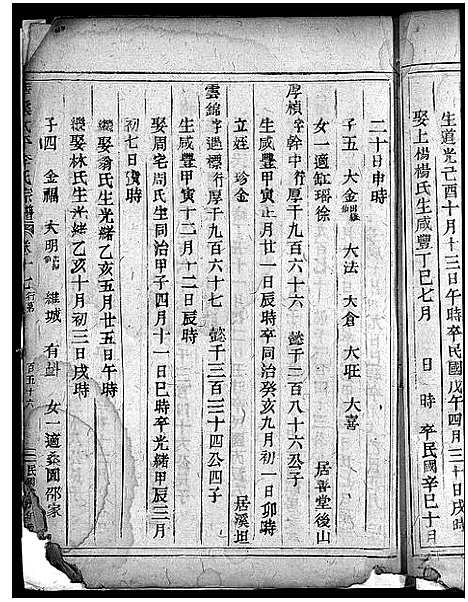 生道光己酉十月十三日午時卒民國戊午四月二十日戌時
娶上楊楊氏生咸豐丁巳七月 日 時 卒民國辛巳十月
二十日申時
子五 大金 大法 大倉 大旺 大喜
女一適缸瑤徐
厚楨字幹中行厚千九百六十六 懿千二百八十六公子 居普堂後山
生咸豐甲寅正月廿一日辰時卒同治癸亥九月初一日卯時
立姪 珍金
雲錦字遜標行厚千九百六十七 懿千三百三十四公四子 居溪坦
生咸豐甲寅十二月十二日辰時
娶周宅周氏生同治甲子四月十一日巳時卒光緒甲辰三月
初七日寅時
繼娶翁氏生光緒乙亥五月廿五日午時
繼娶林氏生光緒乙亥十月初三日戌時
子四 金福 大明 維城 有 女一適 圓邵家
李氏宗譜 卷十七行第 百五十六 民國